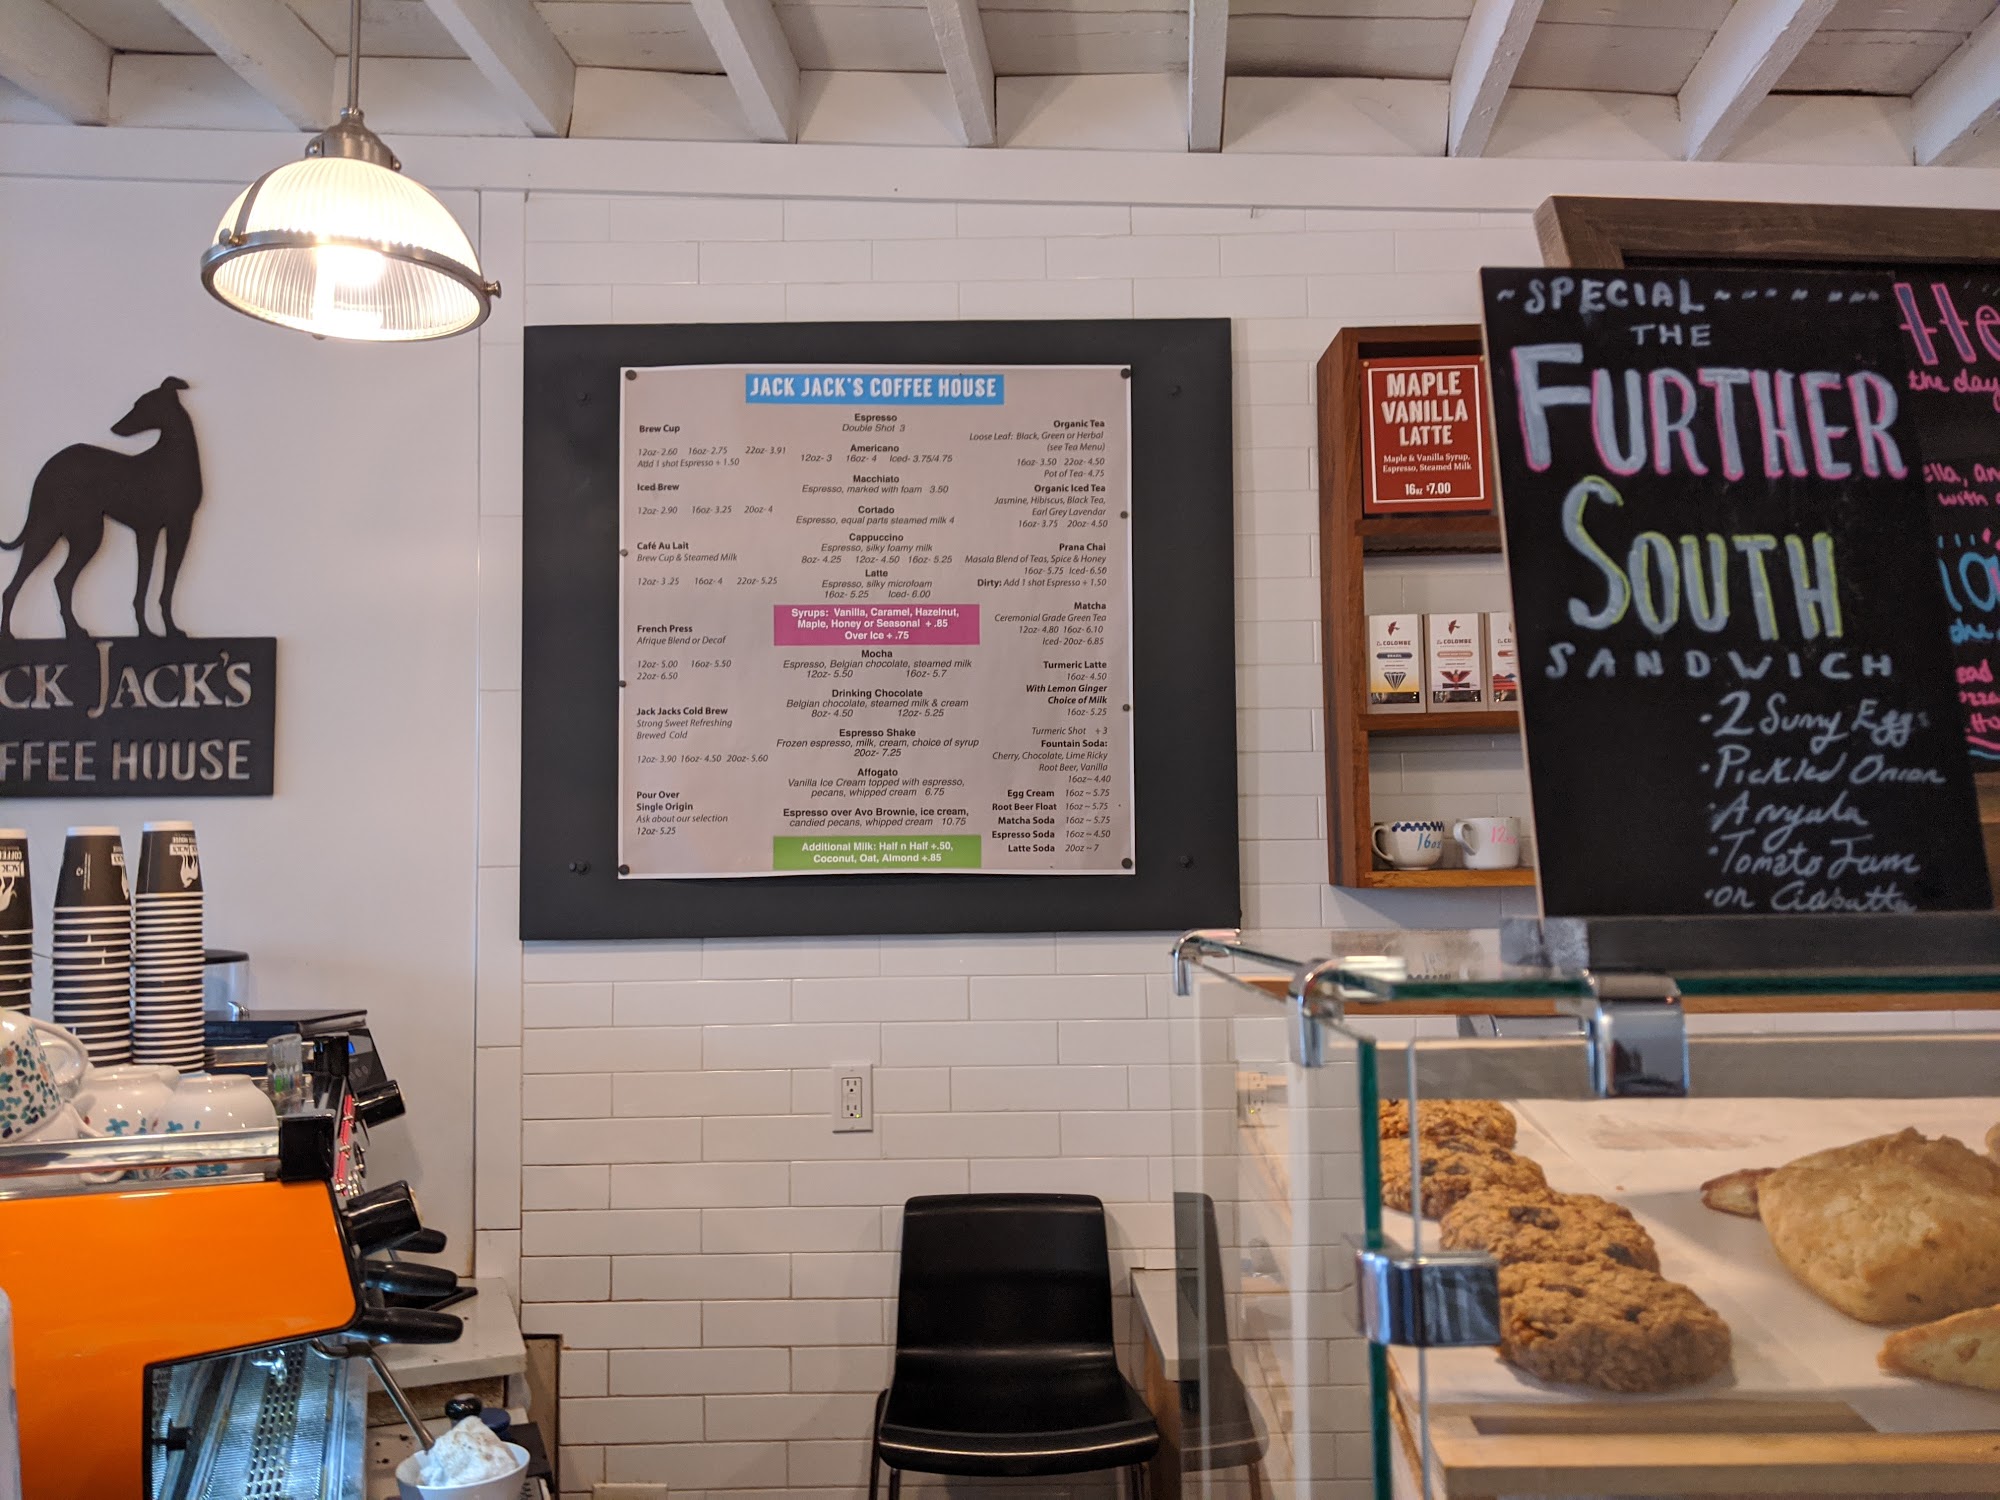 JACK JACK'S COFFEE HOUSE
Brew Cup
12oz- 2.60 16oz- 2.75 22oz- 3.91
Add 1 shot Espresso + 1.50
Iced Brew
12oz- 2.90 16oz- 3.25 20oz- 4
Café Au Lait
Brew Cup & Steamed Milk
12oz- 3.25 16oz- 4 22oz- 5.25
French Press
Afrique Blend or Decaf
12oz- 5.00 16oz- 5.50
22oz- 6.50
Jack Jacks Cold Brew
Strong Sweet Refreshing
Brewed Cold
12oz- 3.90 16oz- 4.50 20oz- 5.60
Pour Over
Single Origin
Ask about our selection
12oz- 5.25
Espresso
Double Shot 3
Americano
12oz- 3 16oz- 4 Iced- 3.75/4.75
Macchiato
Espresso, marked with foam 3.50
Cortado
Espresso, equal parts steamed milk 4
Cappuccino
Espresso, silky foamy milk
8oz- 4.25 12oz- 4.50 16oz- 5.25
Latte
Espresso, silky microfoam
16oz- 5.25 Iced- 6.00
Syrups: Vanilla, Caramel, Hazelnut,
Maple, Honey or Seasonal + .85
Over Ice + .75
Mocha
Espresso, Belgian chocolate, steamed milk
12oz- 5.50 16oz- 5.7
Drinking Chocolate
Belgian chocolate, steamed milk & cream
8oz- 4.50 12oz- 5.25
Espresso Shake
Frozen espresso, milk, cream, choice of syrup
20oz- 7.25
Affogato
Vanilla Ice Cream topped with espresso,
pecans, whipped cream 6.75
Espresso over Avo Brownie, ice cream,
candied pecans, whipped cream 10.75
Additional Milk: Half n Half +.50,
Coconut, Oat, Almond +.85
Organic Tea
Loose Leaf: Black, Green or Herbal
(see Tea Menu)
16oz- 3.50 22oz- 4.50
Pot of Tea- 4.75
Organic Iced Tea
Jasmine, Hibiscus, Black Tea,
Earl Grey Lavendar
16oz- 3.75 20oz- 4.50
Prana Chai
Masala Blend of Teas, Spice & Honey
16oz- 5.75 Iced- 6.50
Dirty: Add 1 shot Espresso + 1.50
Matcha
Ceremonial Grade Green Tea
12oz- 4.80 16oz- 6.10
Iced- 20oz- 6.85
Turmeric Latte
16oz- 4.50
With Lemon Ginger
Choice of Milk
16oz- 5.25
Turmeric Shot + 3
Fountain Soda:
Cherry, Chocolate, Lime Ricky
Root Beer, Vanilla
16oz~ 4.40
Egg Cream 16oz ~ 5.75
Root Beer Float 16oz ~ 5.75
Matcha Soda 16oz ~ 5.75
Espresso Soda 16oz ~ 4.50
Latte Soda 20oz ~ 7
CK JACK'S
FFEE HOUSE
MAPLE
VANILLA
LATTE
Maple & Vanilla Syrup,
Espresso, Steamed Milk
16oz $7.00
La COLOMBE
La COLOMBE
16oz
12oz
~ SPECIAL ~
THE
FURTHER
SOUTH
SANDWICH
· 2 Sunny Eggs
· Pickled Onion
· Arugula
· Tomato Jam
· on Ciabatta
He
the day
ella, an
with